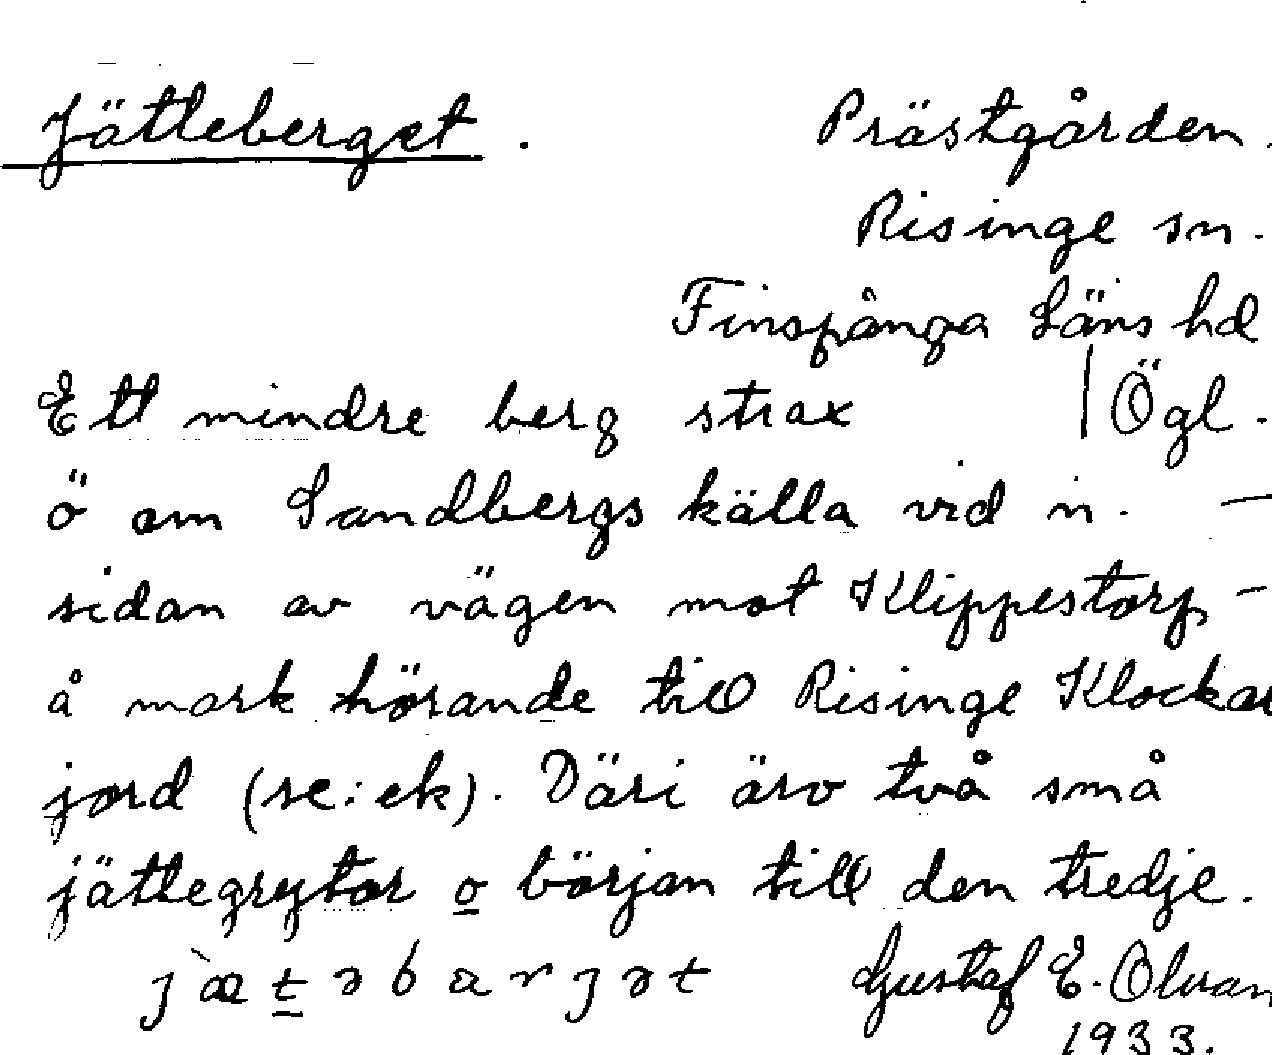 Jätteberget. Prästgården.
Risinge sn.
Finspånga Läns hd
Ett mindre berg strax | Ögl.
ö om Sandbergs källa vid n. —
sidan av vägen mot Klippestorp –
å mark hörande till Risinge Klockar
jord (se: ek). Däri äro två små
jättegrytor o början till den tredje.
Gustaf E. Olvan
1933.